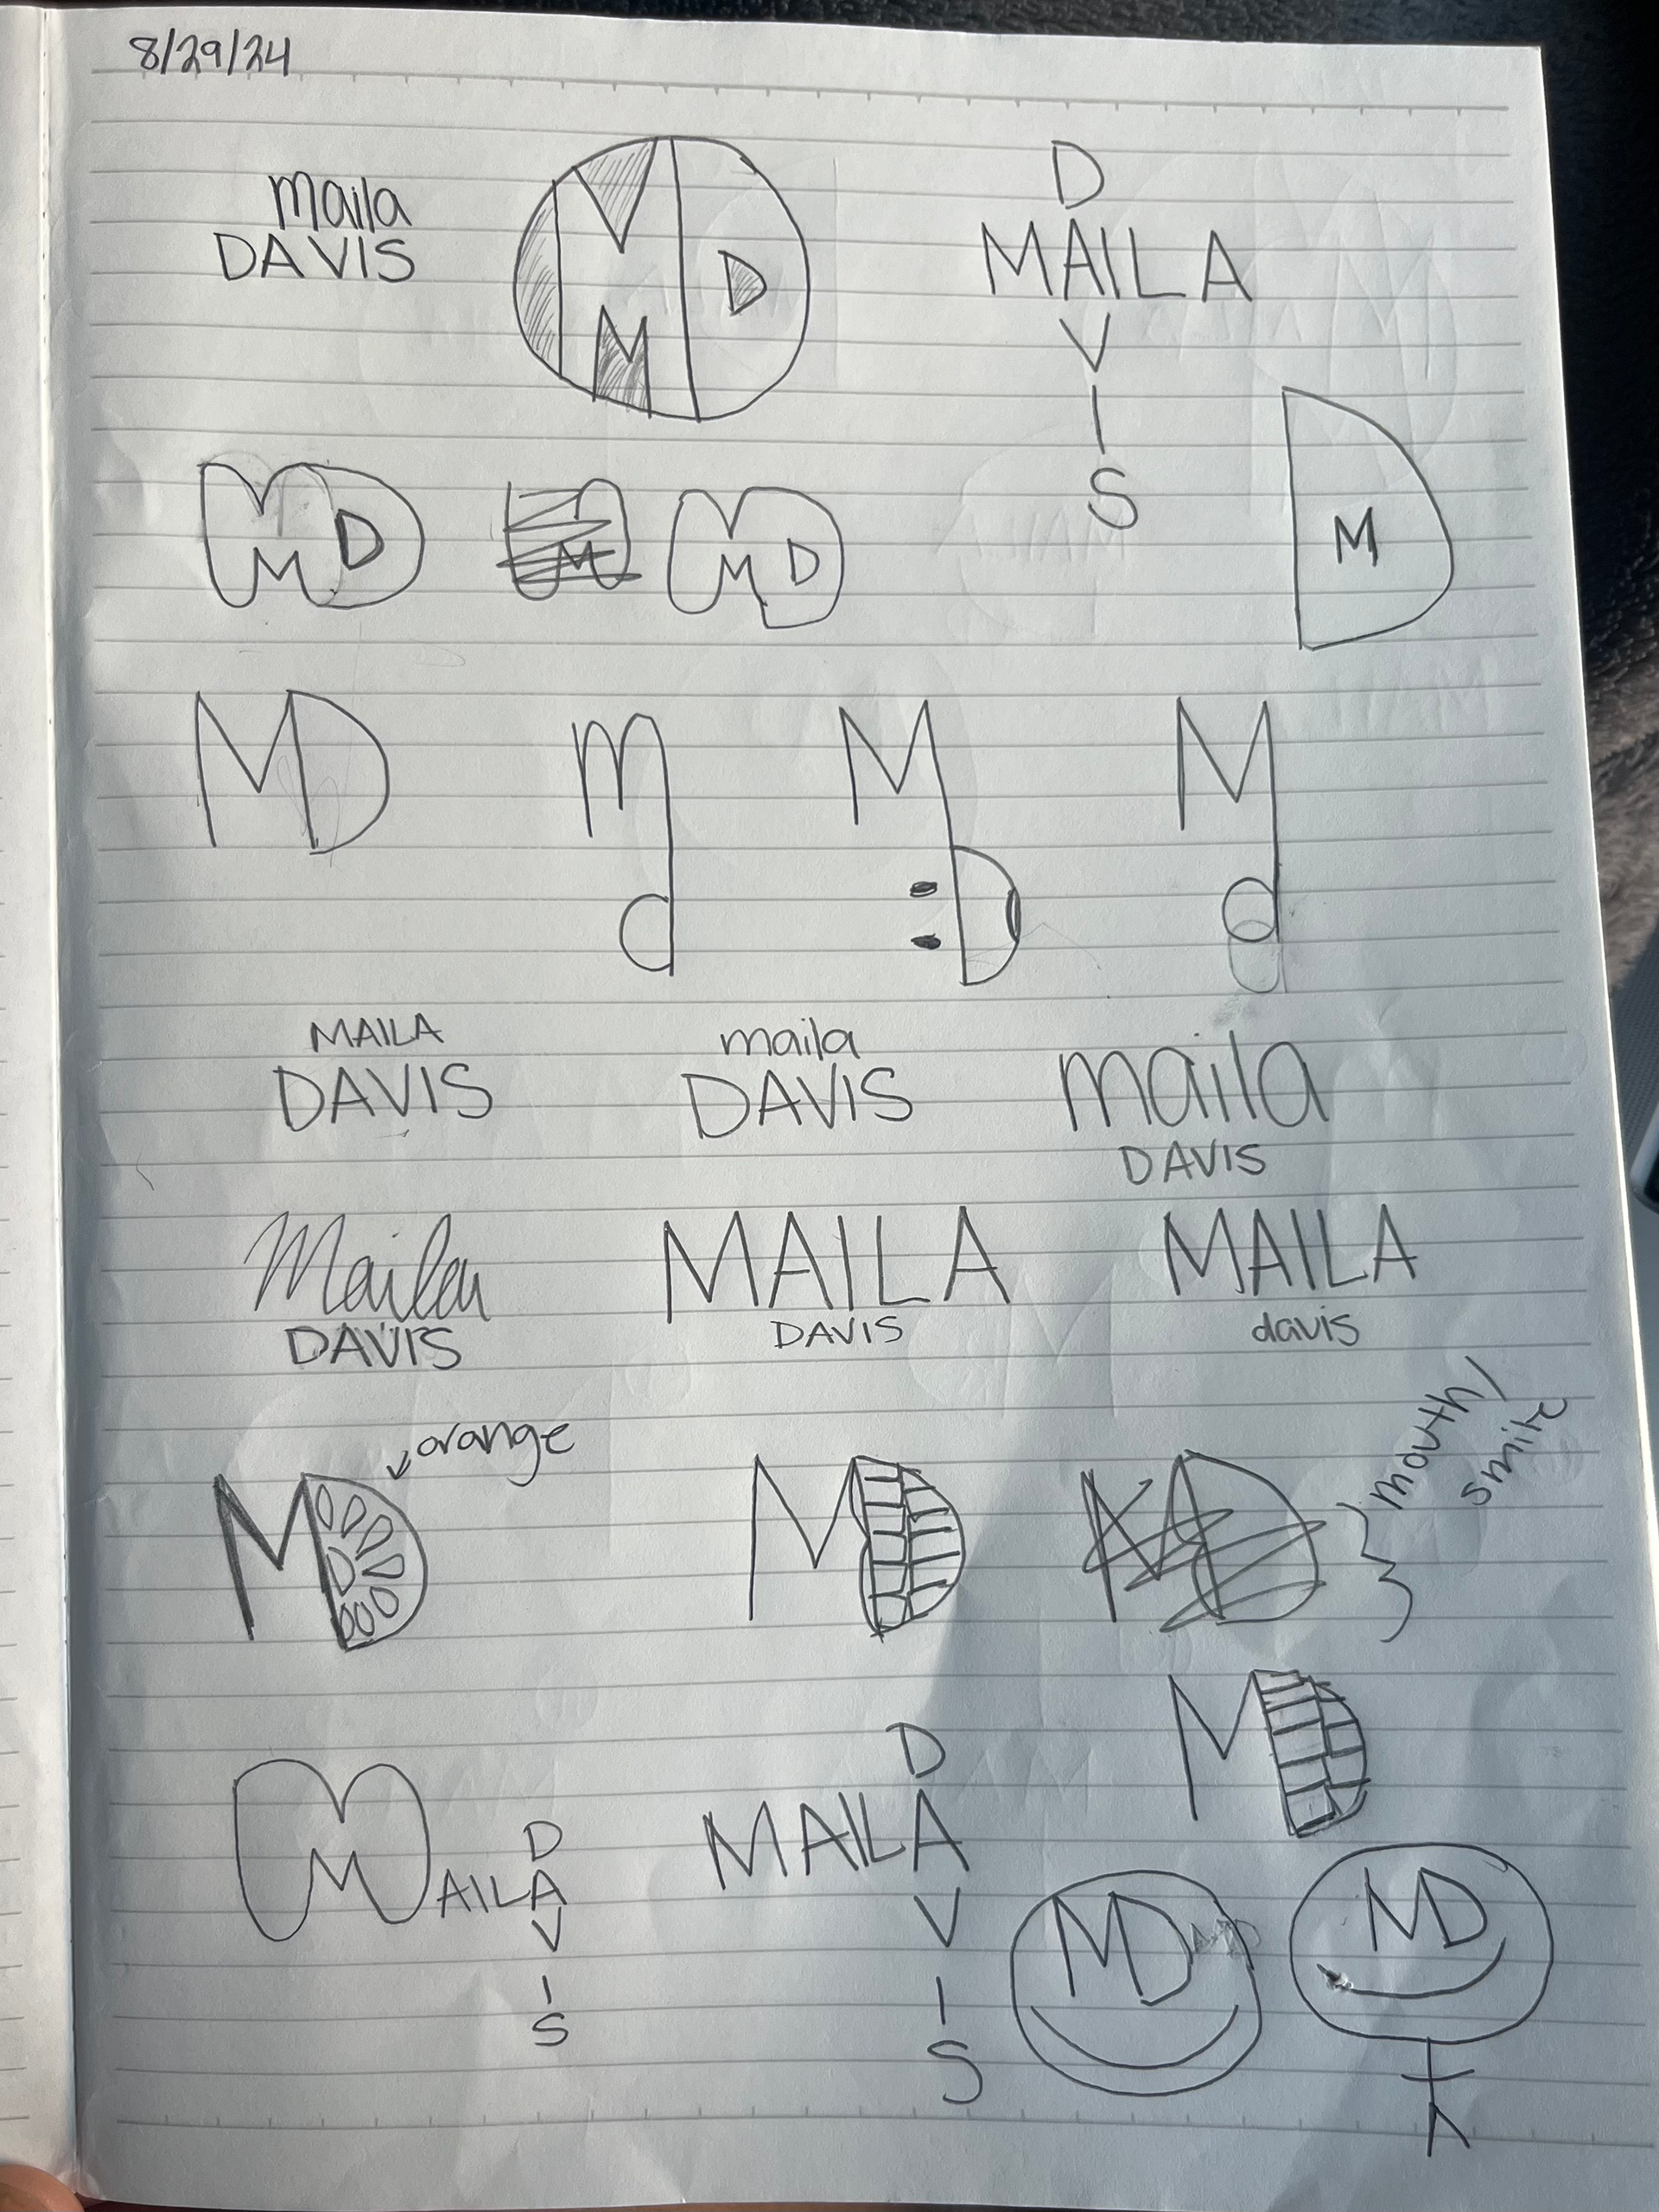 8/29/24
maila
DAVIS
M
D
D
MAILA
V
I
S
MD
M
MD
M
MD
md
MD
Md
MAILA
DAVIS
maila
DAVIS
maila
DAVIS
Maila
DAVIS
MAILA
DAVIS
MAILA
davis
orange
MD
MD
MD
mouth/
smile
MD
D
MAILA
V
I
S
D
MAILA
V
I
S
MD
MD